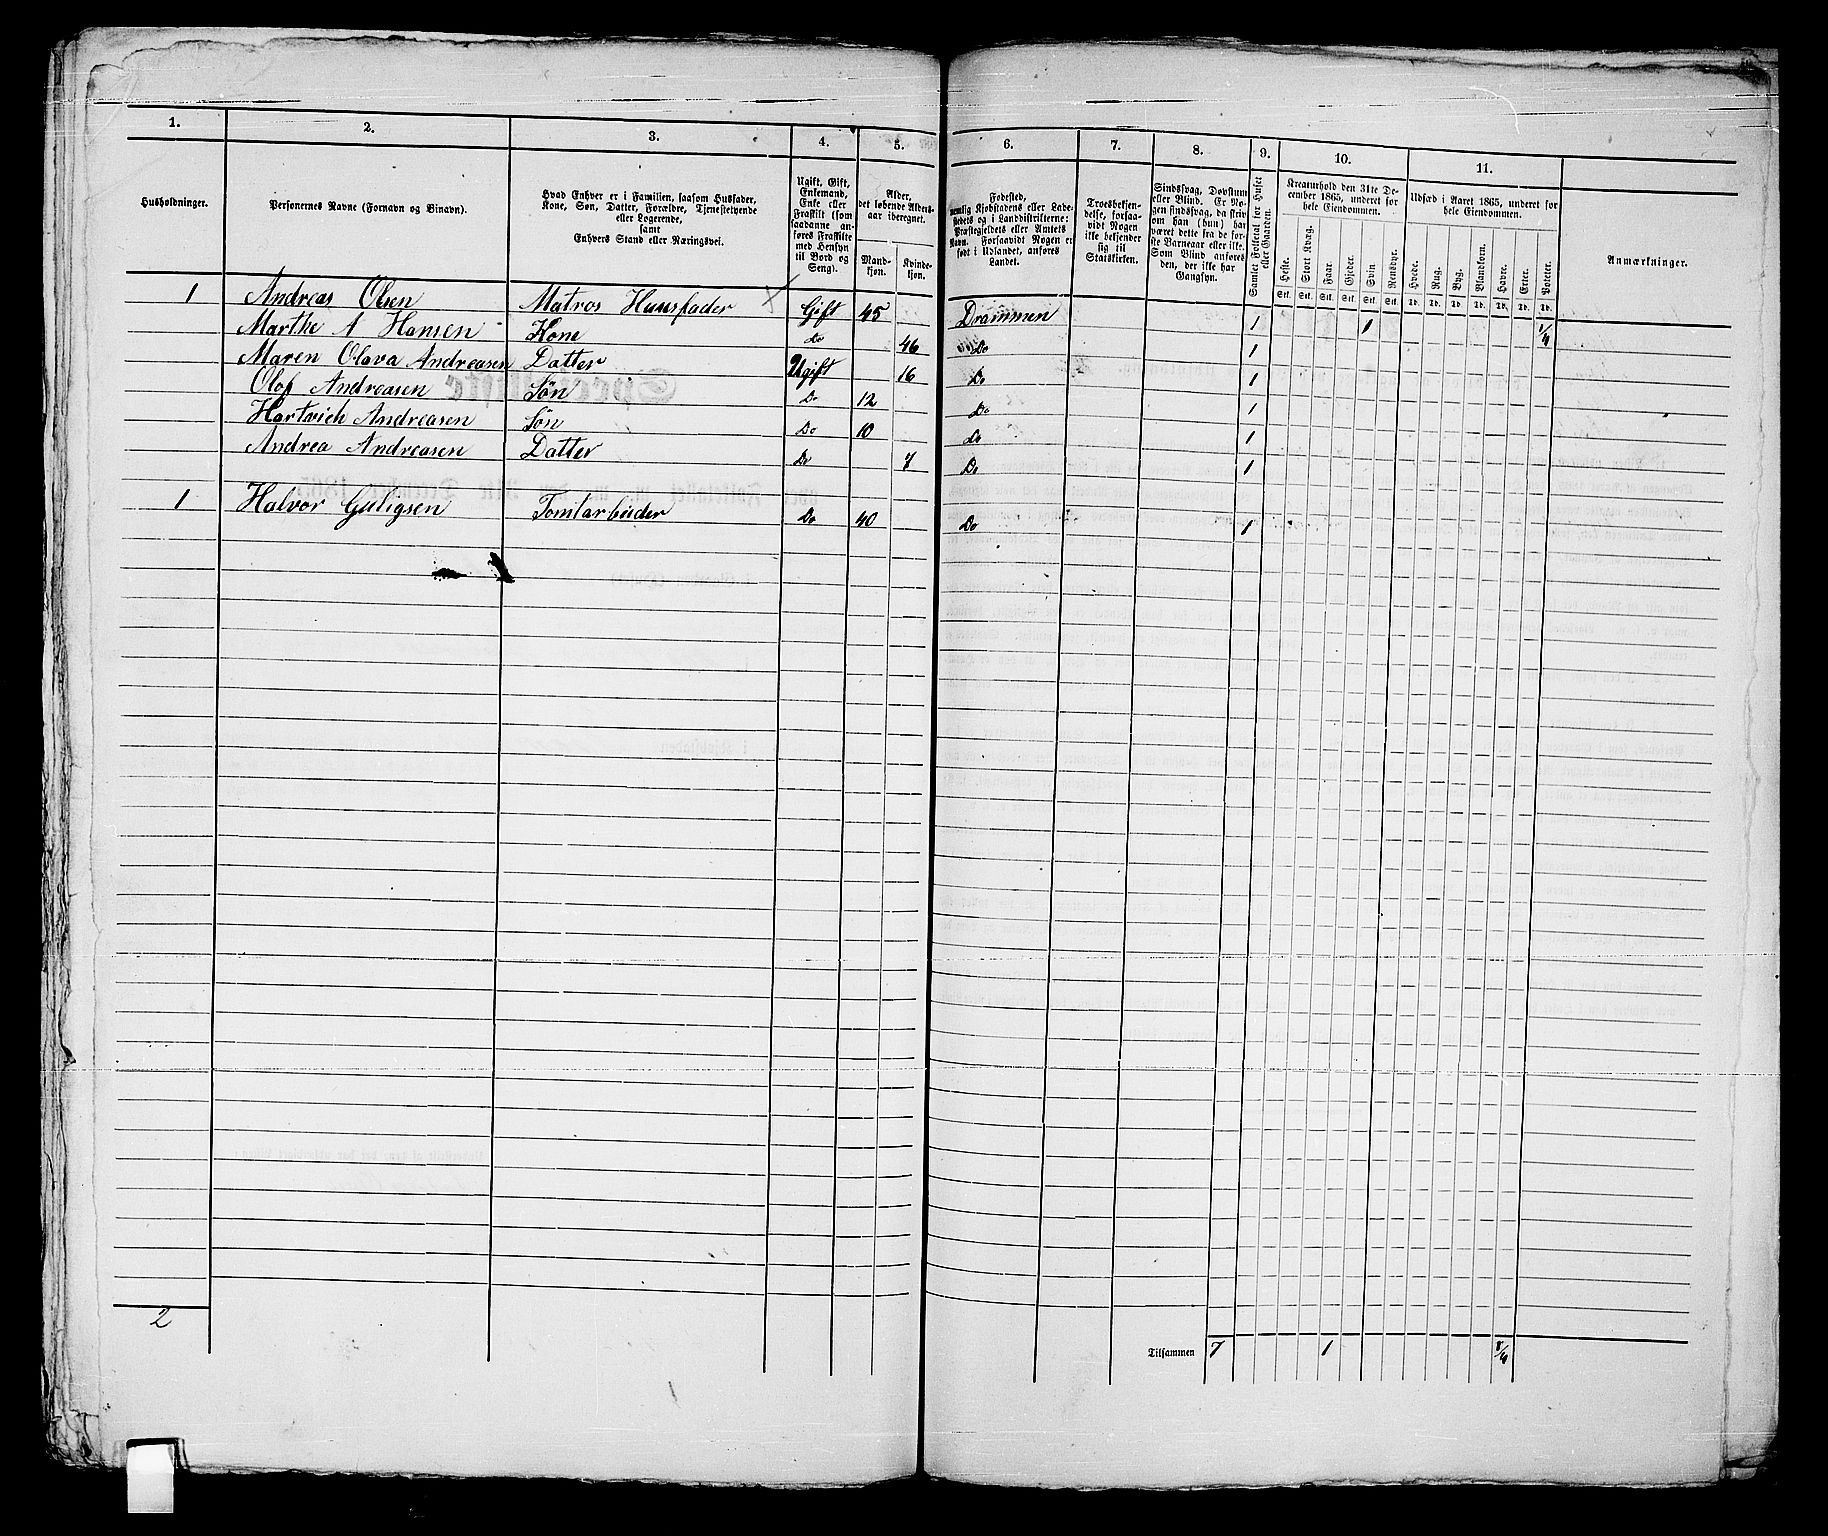 1. 2. 3. 4. 5. 6. 7. 8. 9. 10. 11.
Husholdninger.
Personernes Navne (Fornavn og Binavn).
Hvad Enhver er i Familien, saasom Husfader,
Kone, Søn, Datter, Forældre, Tjenestetyende
eller Logerende,
samt
Enhvers Stand eller Næringsvei.
Ugift, Gift,
Enkemand,
Enke eller
Fraskilt (som
saadanne an-
føres Fraskilte
med Hensyn
til Bord og
Seng).
Alder,
det løbende Alders-
aar iberegnet.
Mand-
kjøn.
Kvinde-
kjøn.
Fødested,
nemlig Kjøbstadens eller Lade-
stedets og i Landdistrikterne:
Præstegjeldets eller Amtets
Navn. Forsaavidt Nogen er
født i Udlandet, anføres
Landet.
Troesbekjen-
delse, forsaa-
vidt Nogen
ikke bekjender
sig til
Statskirken.
Sindssvag, Døvstum
eller Blind. Er No-
gen sindssvag, da skriv
om han (hun) har
været dette fra de før-
ste Barneaar eller ikke.
Som Blind anføres
den, der ikke har
Gangsyn.
Samlet Folketal for Huset
eller Gaarden.
Kreaturhold den 31te De-
cember 1865, underet for
hele Eiendommen.
Heste. Stort Kvæg. Faar. Gjeder. Svin Rensdyr.
Stk. Stk. Stk. Stk. Stk. Stk.
Udsæd i Aaret 1865, underet for
hele Eiendommen.
Hvede. Rug. Byg. Blandkorn. Havre. Erter. Poteter.
Td. Td. Td. Td. Td. Td. Td.
Anmærkninger.
1 Andreas Olsen Matros Huusfader X Gift 45 Drammen 1 1 1/4
Marthe A Hansen Kone Do 46 Do 1
Maren Olava Andreasen Datter Ugift 16 Do 1
Olof Andreasen Søn Do 12 Do 1
Hartvich Andreasen Søn Do 10 Do 1
Andrea Andreasen Datter Do 7 Do 1
1 Halvor Guligsen Tomtarbeider Do 40 Do 1
2
Tilsammen 7 1 1/4